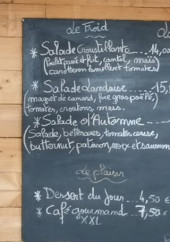 Le Froid
* Salade Croustillante... 14,
cantal, maïs
tomates)
* Salade landaise... 15,
(magret de canard, foie gras poêlé,
tomates, croutons, maïs.
* Salade d'Automne
(Salade, betteraves, tomates cerise,
butternut, potiron, noix et saumon
Le plaisir
* Dessert du Jour... 4,50 €
* Café gourmand 7,50 €
XXL